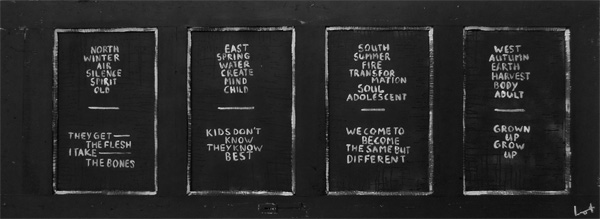 NORTH
WINTER
AIR
SILENCE
SPIRIT
OLD
THEY GET —
THE FLESH
I TAKE —
THE BONES
EAST
SPRING
WATER
CREATE
MIND
CHILD
KIDS DON'T
KNOW
THEY KNOW
BEST
SOUTH
SUMMER
FIRE
TRANSFOR
MATION
SOUL
ADOLESCENT
WE COME TO
BECOME
THE SAME BUT
DIFFERENT
WEST
AUTUMN
EARTH
HARVEST
BODY
ADULT
GROWN
UP
GROW
UP